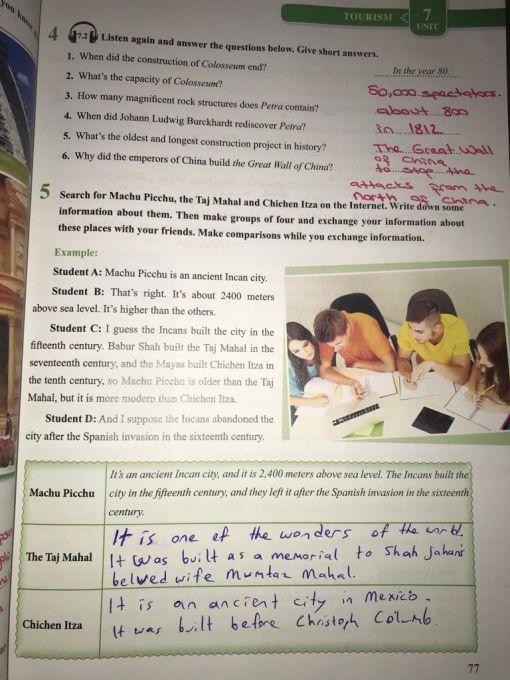 you know
TOURISM
7
UNIT
4 7.2 Listen again and answer the questions below. Give short answers.
1. When did the construction of Colosseum end? In the year 80
2. What's the capacity of Colosseum? 50,000 spectators.
3. How many magnificent rock structures does Petra contain? about 800
4. When did Johann Ludwig Burckhardt rediscover Petra? in 1812
5. What's the oldest and longest construction project in history? The Great Wall of China
6. Why did the emperors of China build the Great Wall of China? to stop the attacks from the North of China.
5 Search for Machu Picchu, the Taj Mahal and Chichen Itza on the Internet. Write down some
information about them. Then make groups of four and exchange your information about
these places with your friends. Make comparisons while you exchange information.
Example:
Student A: Machu Picchu is an ancient Incan city.
Student B: That's right. It's about 2400 meters
above sea level. It's higher than the others.
Student C: I guess the Incans built the city in the
fifteenth century. Babur Shah built the Taj Mahal in the
seventeenth century, and the Mayas built Chichen Itza in
the tenth century, so Machu Picchu is older than the Taj
Mahal, but it is more modern than Chichen Itza.
Student D: And I suppose the Incans abandoned the
city after the Spanish invasion in the sixteenth century.
Machu Picchu
It's an ancient Incan city, and it is 2,400 meters above sea level. The Incans built the
city in the fifteenth century, and they left it after the Spanish invasion in the sixteenth
century.
The Taj Mahal
It is one of the wonders of the world.
It was built as a memorial to Shah Jahan's
beloved wife Mumtaz Mahal.
Chichen Itza
It is an ancient city in Mexico.
It was built before Christoph Columb.
77